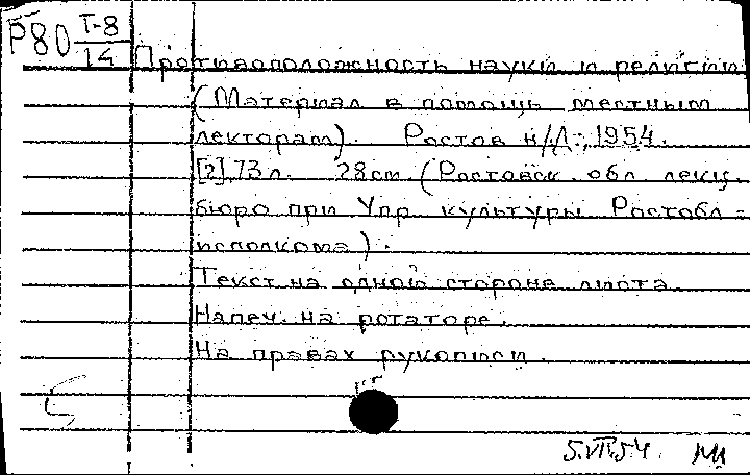 Р80 Т-8
14
Противоположность науки и религии
(Материал в помощь местным
лекторам). Ростов н/Д., 1954.
[2],73л. 28см. (Ростовск. обл. лекц.
бюро при Упр. культуры Ростобл=
исполкома).
Текст на одной стороне листа.
Напеч. на ротаторе.
На правах рукописи.